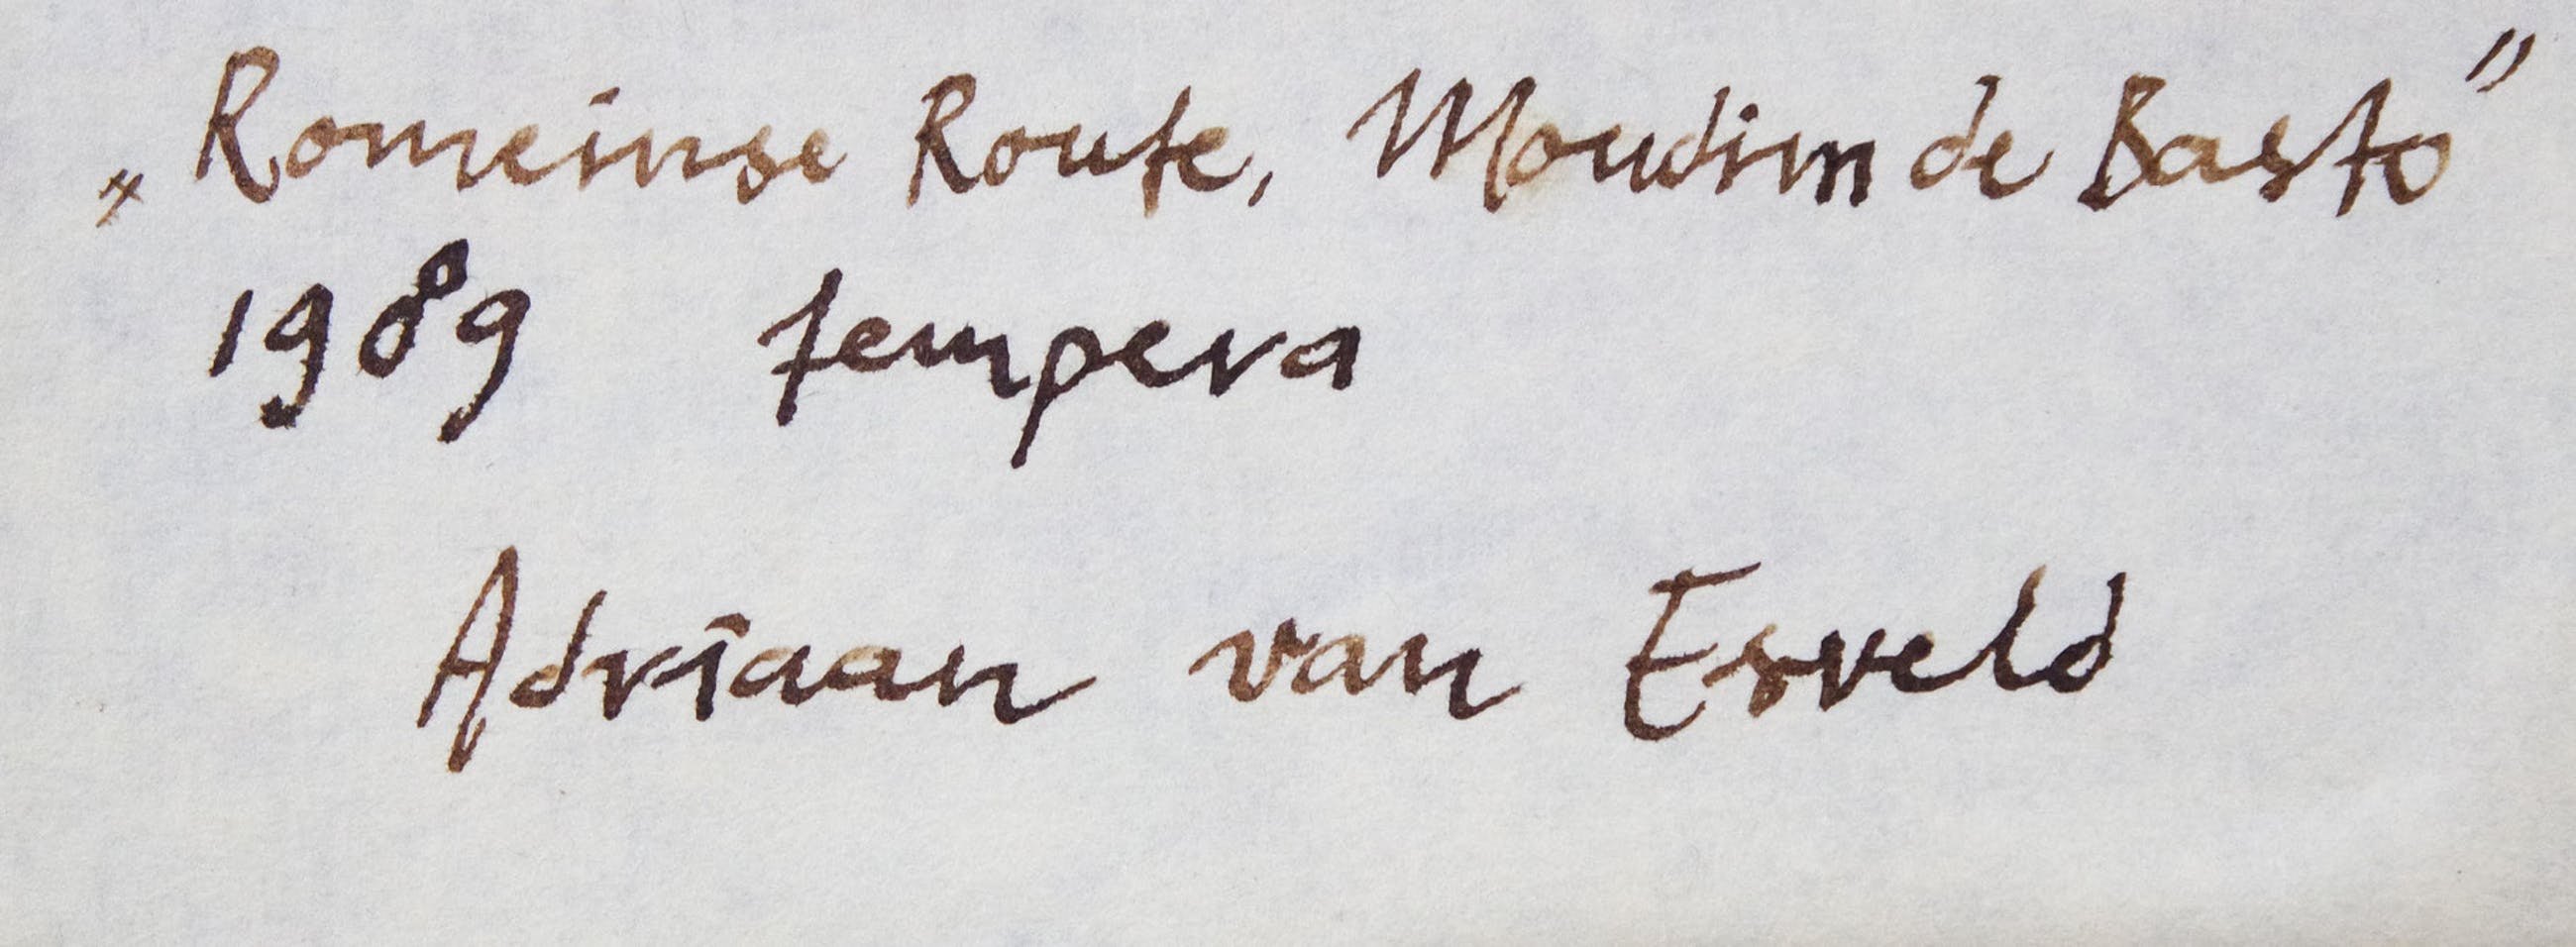 „Romeinse Route, Moudim de Basto”
1989 tempera
Adriaan van Esveld